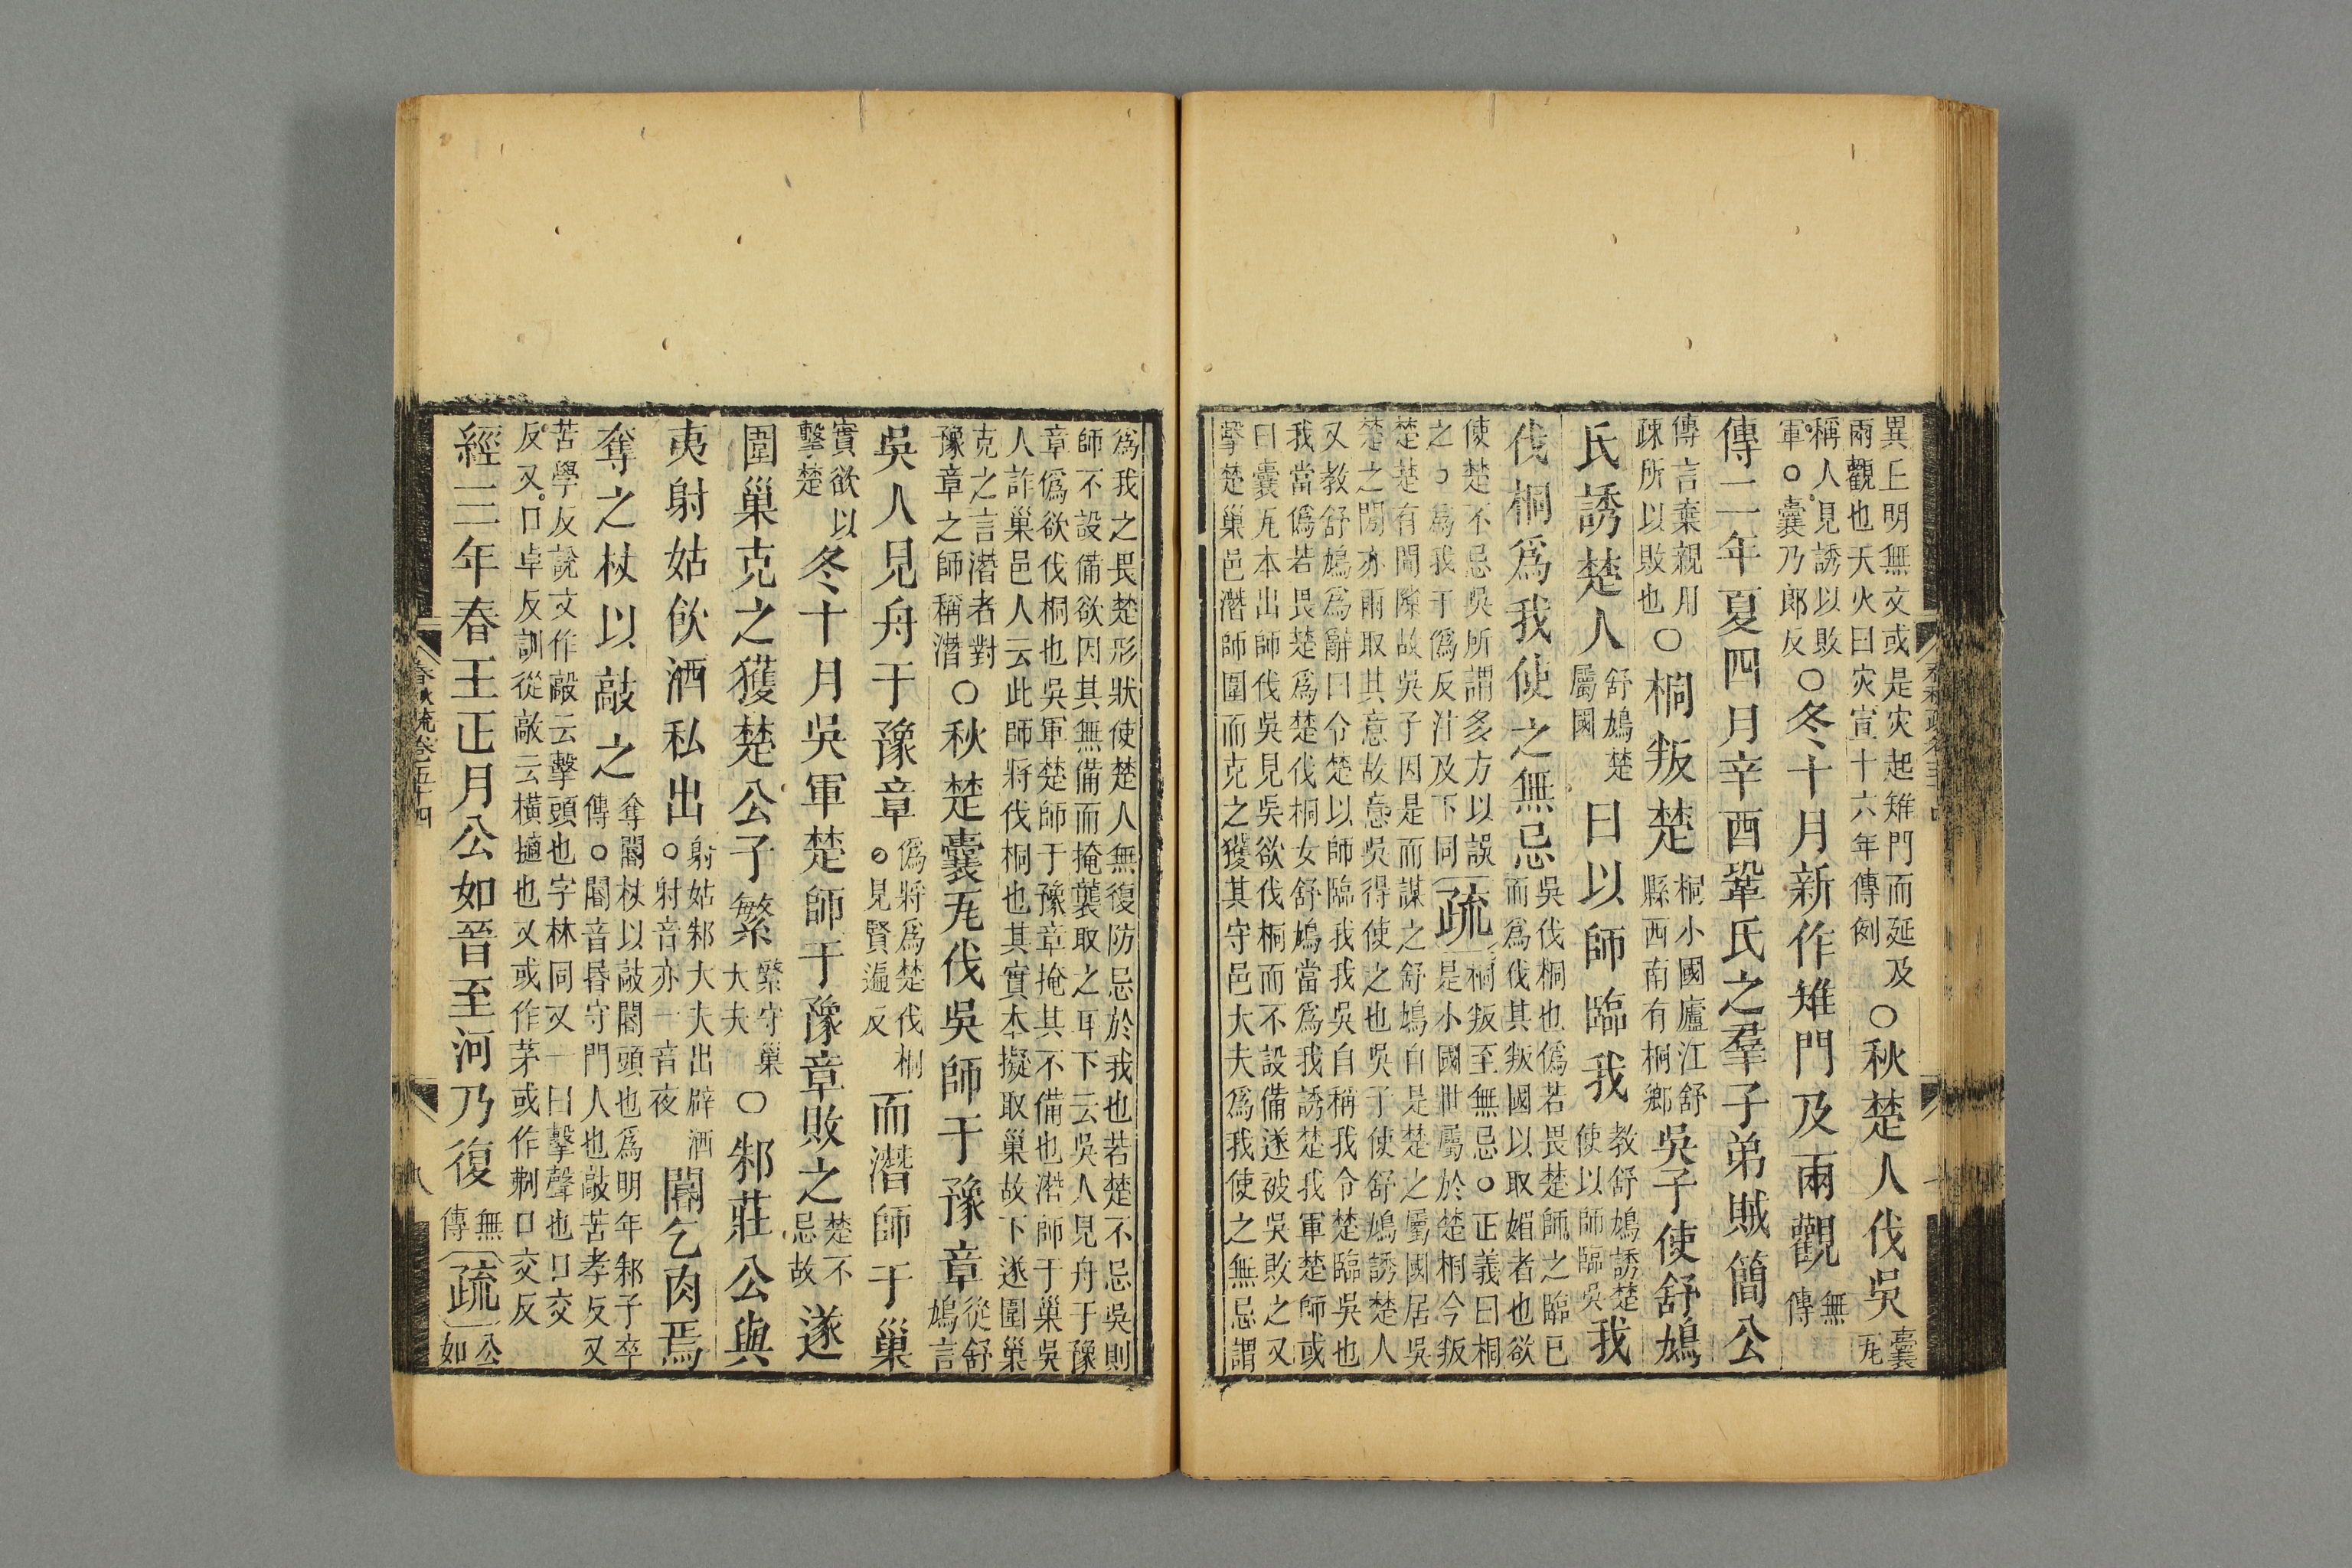 異上明無文或是灾起雉門而延及
兩觀也天火曰灾宣十六年傳例
○秋楚人伐吳
囊
瓦
稱人見誘以敗
軍○囊乃郎反
○冬十月新作雉門及兩觀
無
傳
傳二年夏四月辛酉鞏氏之羣子弟賊簡公
傳言棄親用
疎所以敗也
○桐叛楚
桐小國廬江舒
縣西南有桐鄉
吳子使舒鳩
氏誘楚人
舒鳩楚
屬國
曰以師臨我
教舒鳩誘楚
使以師臨吳
我
伐桐爲我使之無忌
吳伐桐也僞若畏楚師之臨已
而爲伐其叛國以取媚者也欲
使楚不忌吳所謂多方以誤
之○爲我于僞反注及下同
疏
桐叛至無忌○正義曰桐
是小國世屬於楚桐今叛
楚楚有間隙故吳子因是而謀之舒鳩自是楚之屬國居吳
楚之間亦兩取其意故意吳得使之也吳子使舒鳩誘楚人
又教舒鳩爲辭曰令楚以師臨我我吳自稱我令楚臨吳也
我當僞若畏楚爲楚伐桐女舒鳩當爲我誘楚我軍楚師或
曰囊瓦本出師伐吳見吳欲伐桐而不設備遂被吳敗之又
擊楚巢邑潛師圍而克之獲其守邑大夫爲我使之無忌謂
爲我之畏楚形狀使楚人無復防忌於我也若楚不忌吳則
師不設備欲因其無備而掩襲取之耳下云吳人見舟于豫
章僞欲伐桐也吳軍楚師于豫章掩其不備也潛師于巢吳
人詐巢邑人云此師將伐桐也其實本擬取巢故下遂圍巢
克之言潛者對
豫章之師稱潛
○秋楚囊瓦伐吳師于豫章
從舒
鳩言
吳人見舟于豫章
僞將爲楚伐桐
○見賢遍反
而潛師于巢
實欲以
擊楚
冬十月吳軍楚師于豫章敗之
楚不
忌故
遂
圍巢克之獲楚公子繁
繁守巢
大夫
○邾莊公與
夷射姑飲酒私出
射姑邾大夫出辟酒
○射音亦一音夜
閽乞肉焉
奪之杖以敲之
奪閽杖以敲閽頭也爲明年邾子卒
傳○閽音昏守門人也敲苦孝反又
苦學反說文作㪣云擊頭也字林同又一曰擊聲也口交
反又口卓反訓從敲云橫擿也又或作茅或作剌口交反
經三年春王正月公如晉至河乃復
無
傳
疏
公
如
春秋疏卷五十四
八